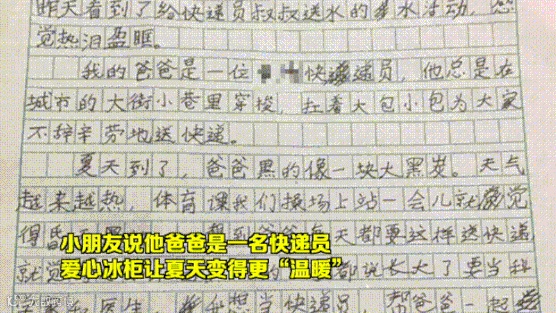 昨天看到了给快递员叔叔送水的
觉热泪盈眶。
我的爸爸是一位 快递员，他总是在
城市的大街小巷里穿梭，扛着大包小包为大家
不辞辛劳地送快递。
夏天到了，爸爸黑的像一块大黑炭。天气
越来越热，体育课我们操场上站一会儿就感觉
得 天都要这样送快递
小朋友说他爸爸是一名快递员
就 都说长大了要当科
爱心冰柜让夏天变得更“温暖”
医生， 想当快递员，帮爸爸一起